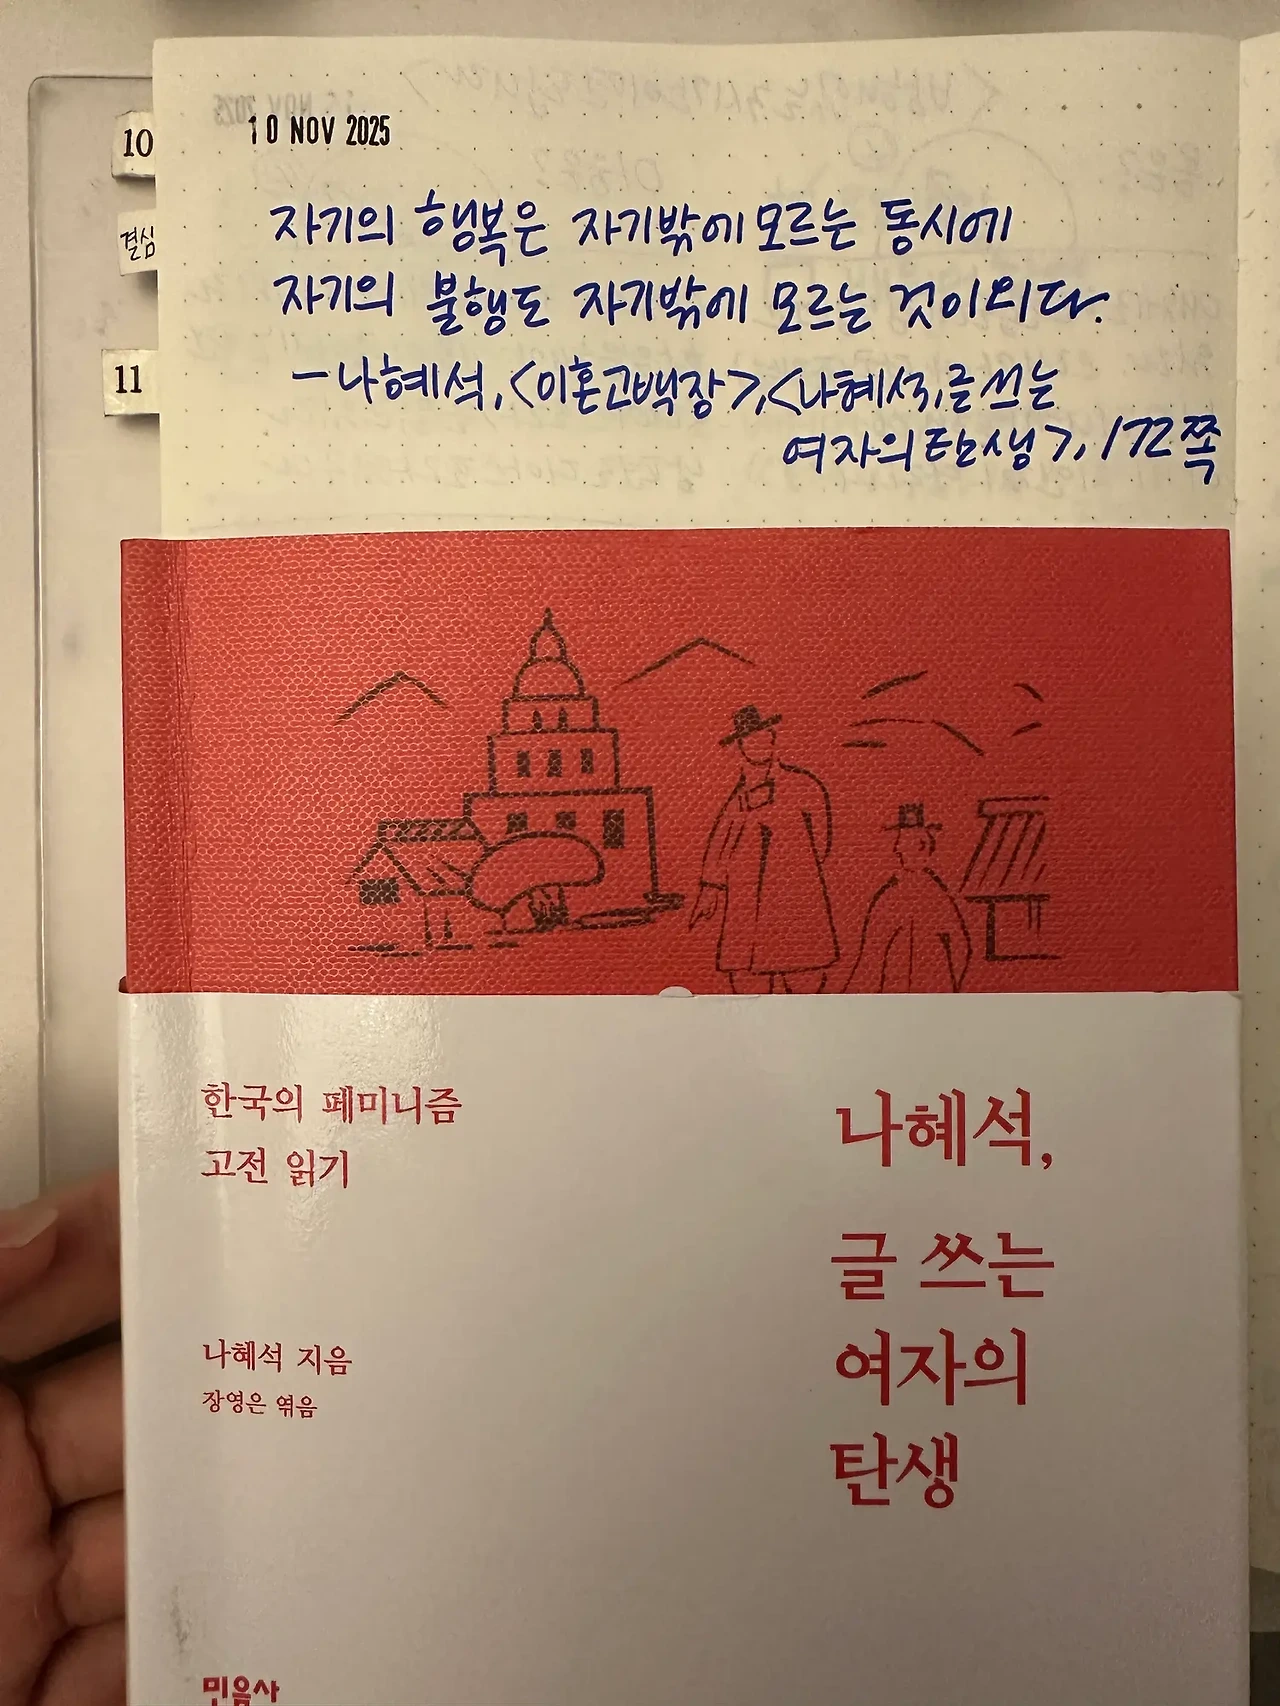 10 NOV 2025
10
결심
11
자기의 행복은 자기밖에 모르는 동시에
자기의 불행도 자기밖에 모르는 것이외다.
-나혜석, <이혼고백장>, <나혜석, 글 쓰는
여자의 탄생>, 172쪽
한국의 페미니즘
고전 읽기
나혜석 지음
장영은 엮음
나혜석,
글 쓰는
여자의
탄생
민음사